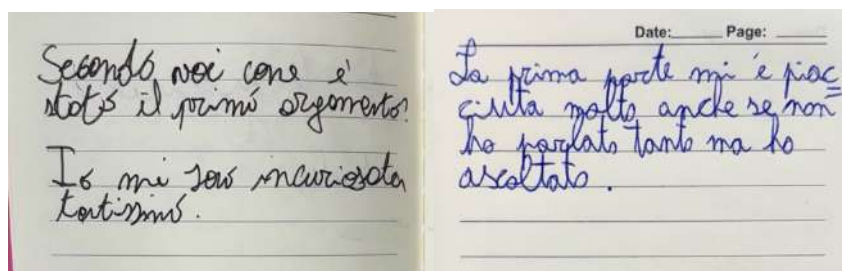 Secondo voi come è
stato il primo argomento?
Io mi sono incuriosita
tantissimo.
Date:_____ Page:_____
La prima parte mi è piac=
ciuta molto anche se non
ho parlato tanto ma ho
ascoltato.